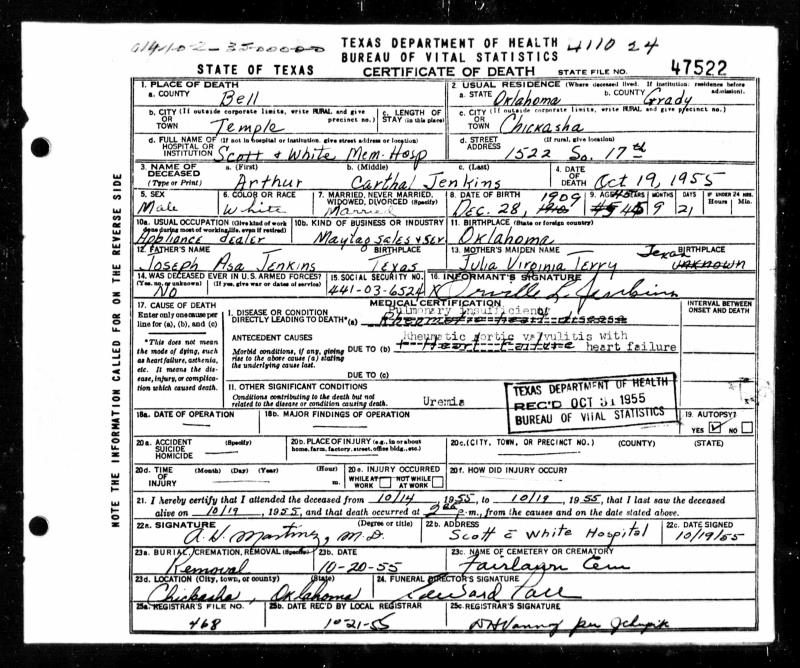 TEXAS DEPARTMENT OF HEALTH 4110 24
BUREAU OF VITAL STATISTICS
STATE OF TEXAS CERTIFICATE OF DEATH STATE FILE NO. 47522
1. PLACE OF DEATH
a. COUNTY Bell
2. USUAL RESIDENCE (Where deceased lived. If institution: residence before admission).
a. STATE Oklahoma b. COUNTY Grady
b. CITY (If outside corporate limits, write RURAL and give precinct no.) OR TOWN Temple
c. LENGTH OF STAY (in this place)
c. CITY (If outside corporate limits, write RURAL and give precinct no.) OR TOWN Chickasha
d. FULL NAME OF (If not in hospital or institution, give street address or location) HOSPITAL OR INSTITUTION Scott & White Mem. Hosp
d. STREET ADDRESS (If rural, give location) 1522 So. 17th
3. NAME OF DECEASED (Type or Print) a. (First) Arthur b. (Middle) Carthal c. (Last) Jenkins
4. DATE OF DEATH Oct 19, 1955
5. SEX Male
6. COLOR OR RACE White
7. MARRIED, NEVER MARRIED, WIDOWED, DIVORCED (Specify) Married
8. DATE OF BIRTH Dec. 28, 1909
9. AGE YEARS 45 MONTHS 9 DAYS 21 IF UNDER 24 HRS. Hours Min.
10a. USUAL OCCUPATION (Give kind of work done during most of working life, even if retired) Appliance dealer
10b. KIND OF BUSINESS OR INDUSTRY Maytag Sales & Ser.
11. BIRTHPLACE (State or foreign country) Oklahoma
12. FATHER'S NAME BIRTHPLACE Joseph Asa Jenkins Texas
13. MOTHER'S MAIDEN NAME BIRTHPLACE Julia Virginia Terry Texas Unknown
14. WAS DECEASED EVER IN U.S. ARMED FORCES? (Yes, no, or unknown) (If yes, give war or dates of service) No
15. SOCIAL SECURITY NO. 441-03-6524
16. INFORMANT'S SIGNATURE X Orville L. Jenkins
MEDICAL CERTIFICATION
17. CAUSE OF DEATH
Enter only one cause per line for (a), (b), and (c)
*This does not mean the mode of dying, such as heart failure, asthenia, etc. It means the disease, injury, or complication which caused death.
I. DISEASE OR CONDITION DIRECTLY LEADING TO DEATH*(a) Pulmonary insufficiency
Rheumatic heart disease
INTERVAL BETWEEN ONSET AND DEATH
ANTECEDENT CAUSES
Morbid conditions, if any, giving rise to the above cause (a) stating the underlying cause last.
DUE TO (b) Rheumatic aortic valvulitis with heart failure
DUE TO (c)
II. OTHER SIGNIFICANT CONDITIONS
Conditions contributing to the death but not related to the disease or condition causing death. Uremia
TEXAS DEPARTMENT OF HEALTH
REC'D OCT 31 1955
BUREAU OF VITAL STATISTICS
18a. DATE OF OPERATION
18b. MAJOR FINDINGS OF OPERATION
19. AUTOPSY? YES NO
20a. ACCIDENT SUICIDE HOMICIDE (Specify)
20b. PLACE OF INJURY (e.g., in or about home, farm, factory, street, office bldg., etc.)
20c. (CITY, TOWN, OR PRECINCT NO.) (COUNTY) (STATE)
20d. TIME OF INJURY (Month) (Day) (Year) (Hour) m.
20e. INJURY OCCURRED WHILE AT WORK NOT WHILE AT WORK
20f. HOW DID INJURY OCCUR?
21. I hereby certify that I attended the deceased from 10/14, 1955, to 10/19, 1955, that I last saw the deceased
alive on 10/19, 1955, and that death occurred at p.m., from the causes and on the date stated above.
22a. SIGNATURE (Degree or title) A. H. Martinez, M.D.
22b. ADDRESS Scott & White Hospital
22c. DATE SIGNED 10/19/55
23a. BURIAL, CREMATION, REMOVAL (Specify) Removal
23b. DATE 10-20-55
23c. NAME OF CEMETERY OR CREMATORY Fairlawn Cem
23d. LOCATION (City, town, or county) (State) Chickasha, Oklahoma
24. FUNERAL DIRECTOR'S SIGNATURE Edward
25a. REGISTRAR'S FILE NO. 468
25b. DATE REC'D BY LOCAL REGISTRAR 10-21-55
25c. REGISTRAR'S SIGNATURE per
NOTE THE INFORMATION CALLED FOR ON THE REVERSE SIDE